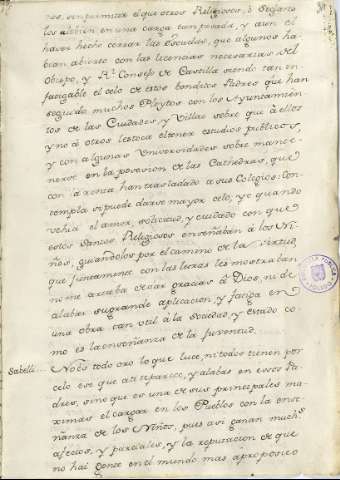 nos, sin permitir el que otros Religiosos, ò Seglares
los alivien en una carga tan pesada, y aun el
haver hecho cerrar las Escuelas, que algunos ha-
bian abierto con las licencias necesarias del
Obispo, y Rl. Consejo de Castilla siendo tan in-
fatigable el celo de estos benditos Padres que han
seguido muchos Pleytos con los Ayuntamien-
tos de las Ciudades, y Villas sobre que à ellos
y no à otros les toca el tener estudios publicos,
y con algunas Universidades sobre mante-
nerse en la posesion de las Cathedras, que
con la renta han trasladado a sus Colegios: Con-
templa si puede darse mayor celo, yo quando
vehia el amor, solicitud, y cuidado con que
estos Santos Religiosos enseñaban à los Ni-
ños, guiandolos por el camino de la virtud,
que juntamente con las letras les mostraban
ni me artaba de dar gracias à Dios, ni de
alabar su grande aplicacion, y fatiga en
una obra tan util à la Sociedad, y estado co-
mo es la enseñanza de la Juventud.
Sabelli... No es todo oro lo que luce, ni todos tienen por
celo ese que a ti te parece, y alabas en estos Pa-
dres, sino que es una de sus principales ma-
ximas el cargar en los Pueblos con la ense-
ñanza de los Niños, pues asi ganan muchos
afectos, y parciales, y la reputacion de que
no hai gente en el mundo mas aproposito
TOLEDO